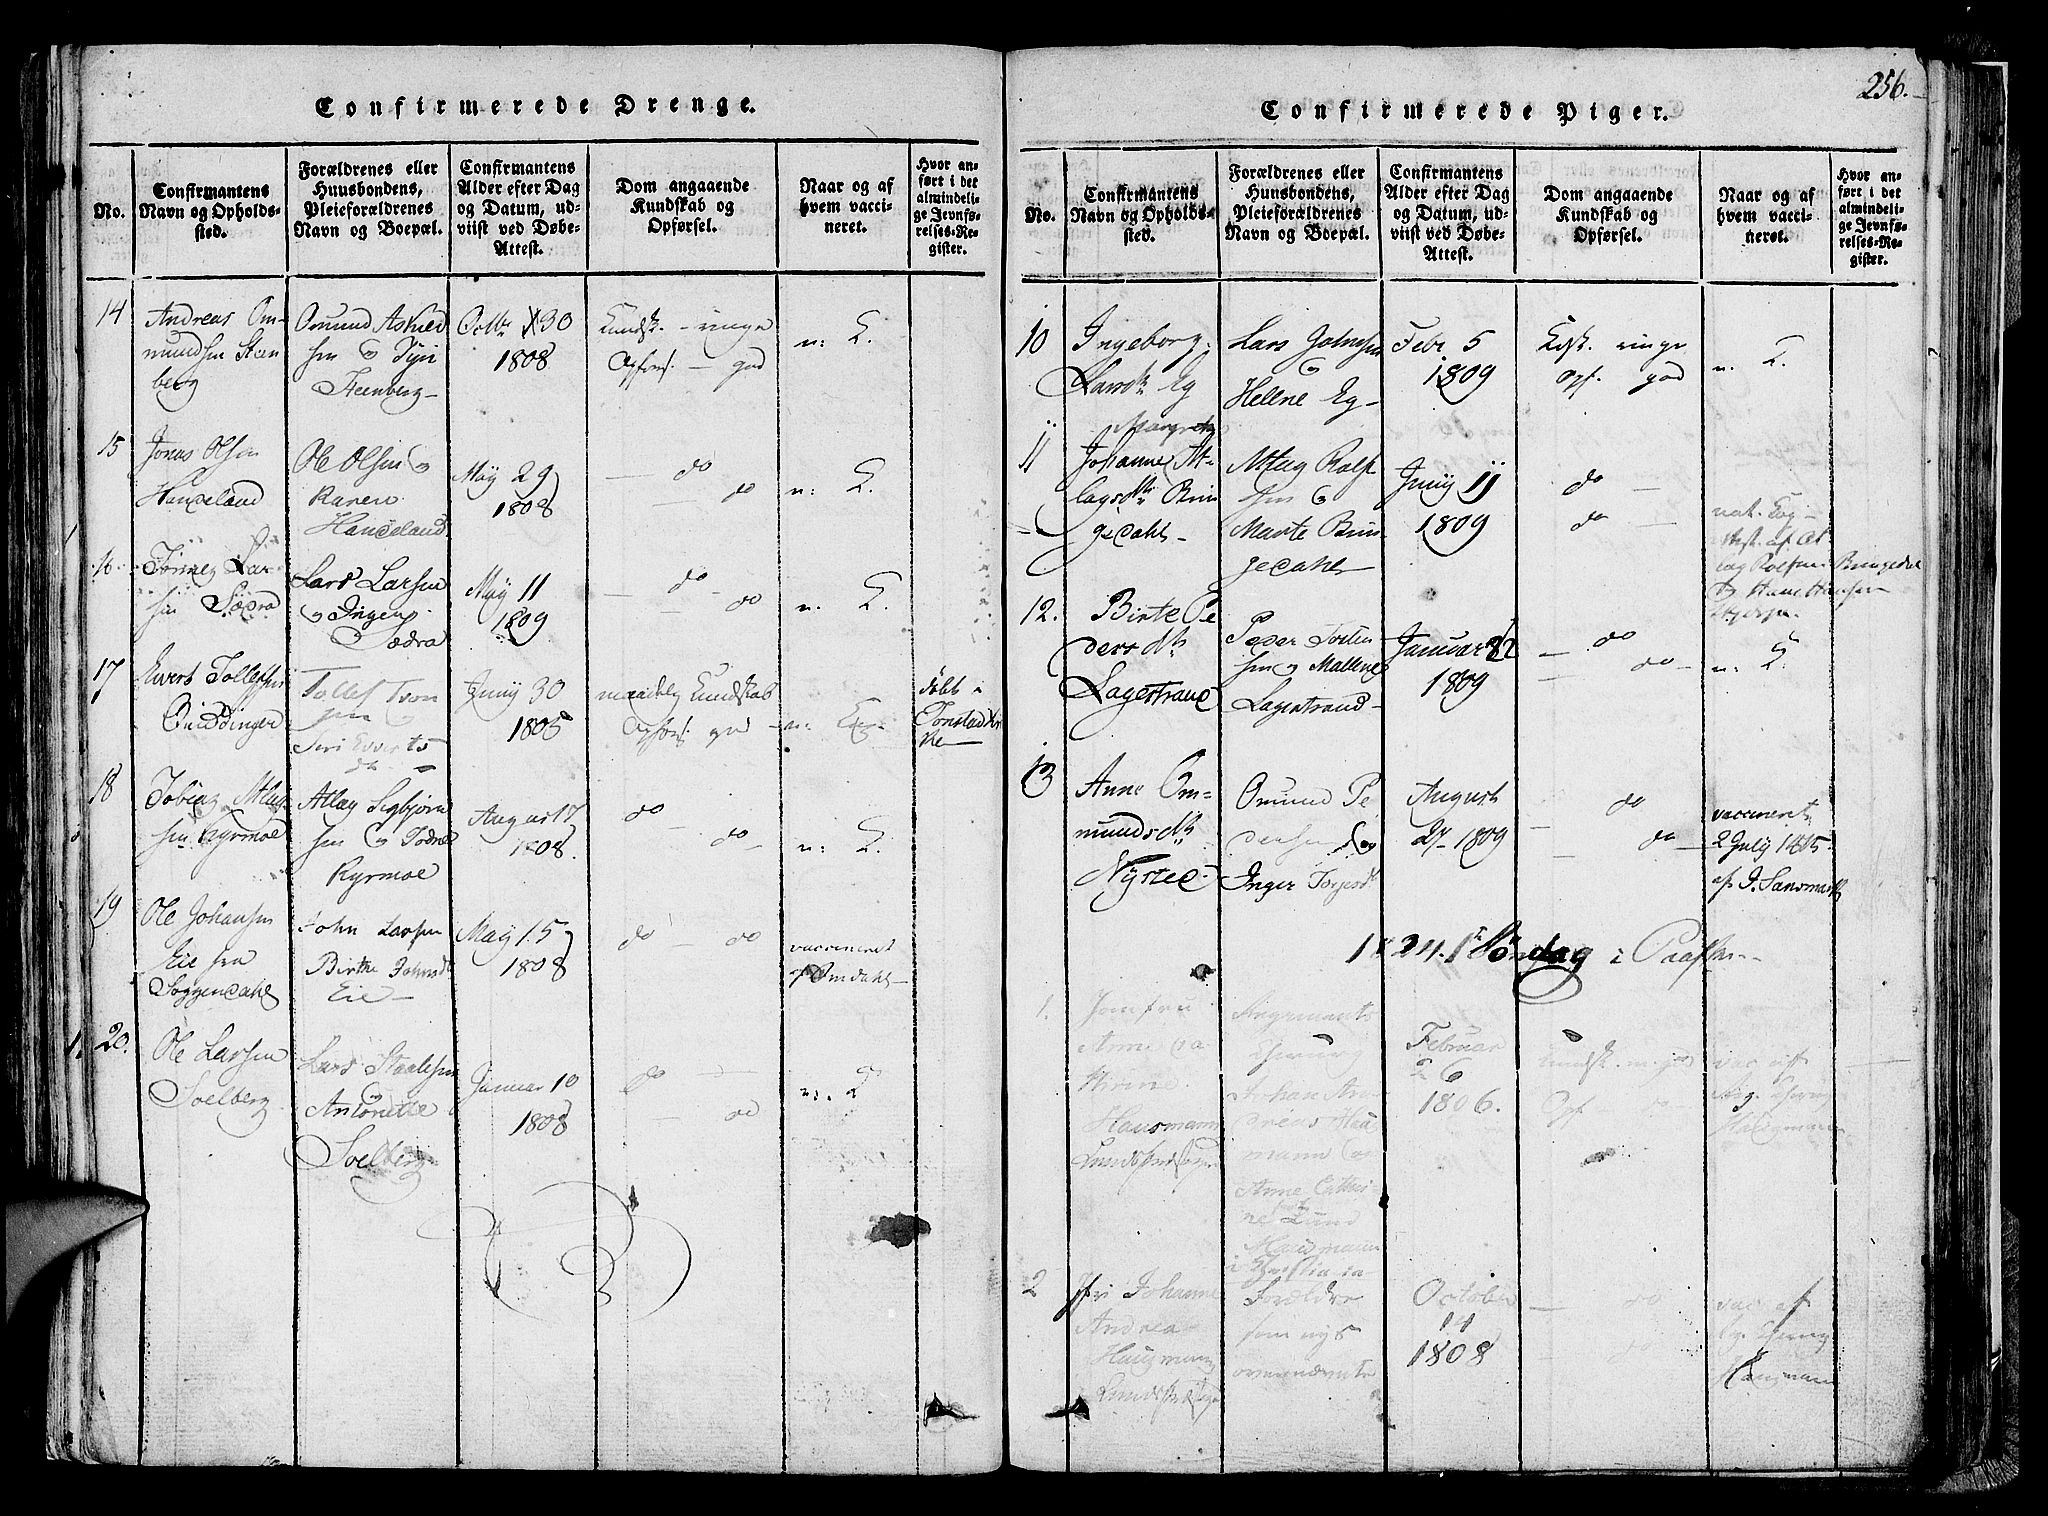 256.
Confirmerede Drenge.
No.
Confirmantens Navn og Opholds-sted.
Forældrenes eller Huusbondens, Pleieforældrenes Navn og Boepæl.
Confirmantens Alder efter Dag og Datum, ud-viist ved Døbe-Attest.
Dom angaaende Kundskab og Opførsel.
Naar og af hvem vacci-neret.
Hvor an-ført i det almindeli-ge Jevnfø-relses-Re-gister.
14
Andreas Om-
mundsen Steen
berg
Omund Askild
sen og
Steenberg
Octbr 30
1808
Kundsk. - ringe
Opførs. - god
n: L.
15
Jonas Olsen
Haneland
Ole Olsen og
Karen
Haneland
May 29
1808
do
do
n: L.
16
Tønnes Lar
sen
Lars Larsen
og Inger
May 11
1809
do
do
n: L.
17
Evert Tollefsen
Qviddinger
Tollef
sen og
Siri Everts
dt
Juny 30
1805
maadelig Kundskab
Opførs. god
n:
døbt i
Tonstad Kir
ke
18
Tobias Atlag
sen Kyrmoe
Atlag Sigbjørn
sen og
Kyrmoe
August 17
1808.
do
do
n: L.
19
Ole Johansen
Eie fra
Soggendahl
John Larsen
Birthe Johnsdt
Eie
May 15
1808
do - do
vaccineret
af Omdahl
20.
Ole Larsen
Soelberg
Lars Staalesen
og
Antonette
Soelberg
Januar 10
1808
do
do
n: L
Confirmerede Piger.
No.
Confirmantens Navn og Opholds-sted.
Forældrenes eller Huusbondens, Pleieforældrenes Navn og Boepæl.
Confirmantens Alder efter Dag og Datum, ud-viist ved Døbe-Attest.
Dom angaaende Kundskab og Opførsel.
Naar og af hvem vacci-neret.
Hvor an-ført i det almindeli-ge Jevnfø-relses-Re-gister.
10
Ingeborg
Larsdtr Eg
Lars Johnsen
og
Helene Eg
Febr 5
1809
Kdsk. ringe
Opf. god
n. L.
11
Margrete
Johanne At-
lagsdtr Brin
gedahl
Atlag Rolf
sen og
Marte Brin
gedahl
Juny 11
1809
do
do
nat. Kop
Att. af At
lag Rolfsen Bringedal
og Hans Hansen
12.
Birte Pe
dersdtr
Lagestrand
Peder Torten
sen og Mallene
Lagestrand
Januar 22
1809
do
do
n: L.
13
Anne Om-
mundsdtr
Nysted
Omund Pe
dersen og
Inger Torjersdt
August
27 1809
do
do
vaccineret
2 July 1815
af J. Sansmark
1824. 1te Søndag i Paaske
1.
Jomfru
Anne Ca
Hausmann
Regiments
Chirurg
Johan An
dreas Hau
mann og
Anne Cathri
ne Lund
Hausmann
Februar
26
1806.
Kundsk. m. god
Opf - do
vac. aff
Reg. Chirurg
Hausmann
2
Jfr Johanne
Andrea
Hausmann
Forældre
som nys
ovennævnte
October
14
1808
do
do
vac. aff
Rg. Chirurg
Hausmann